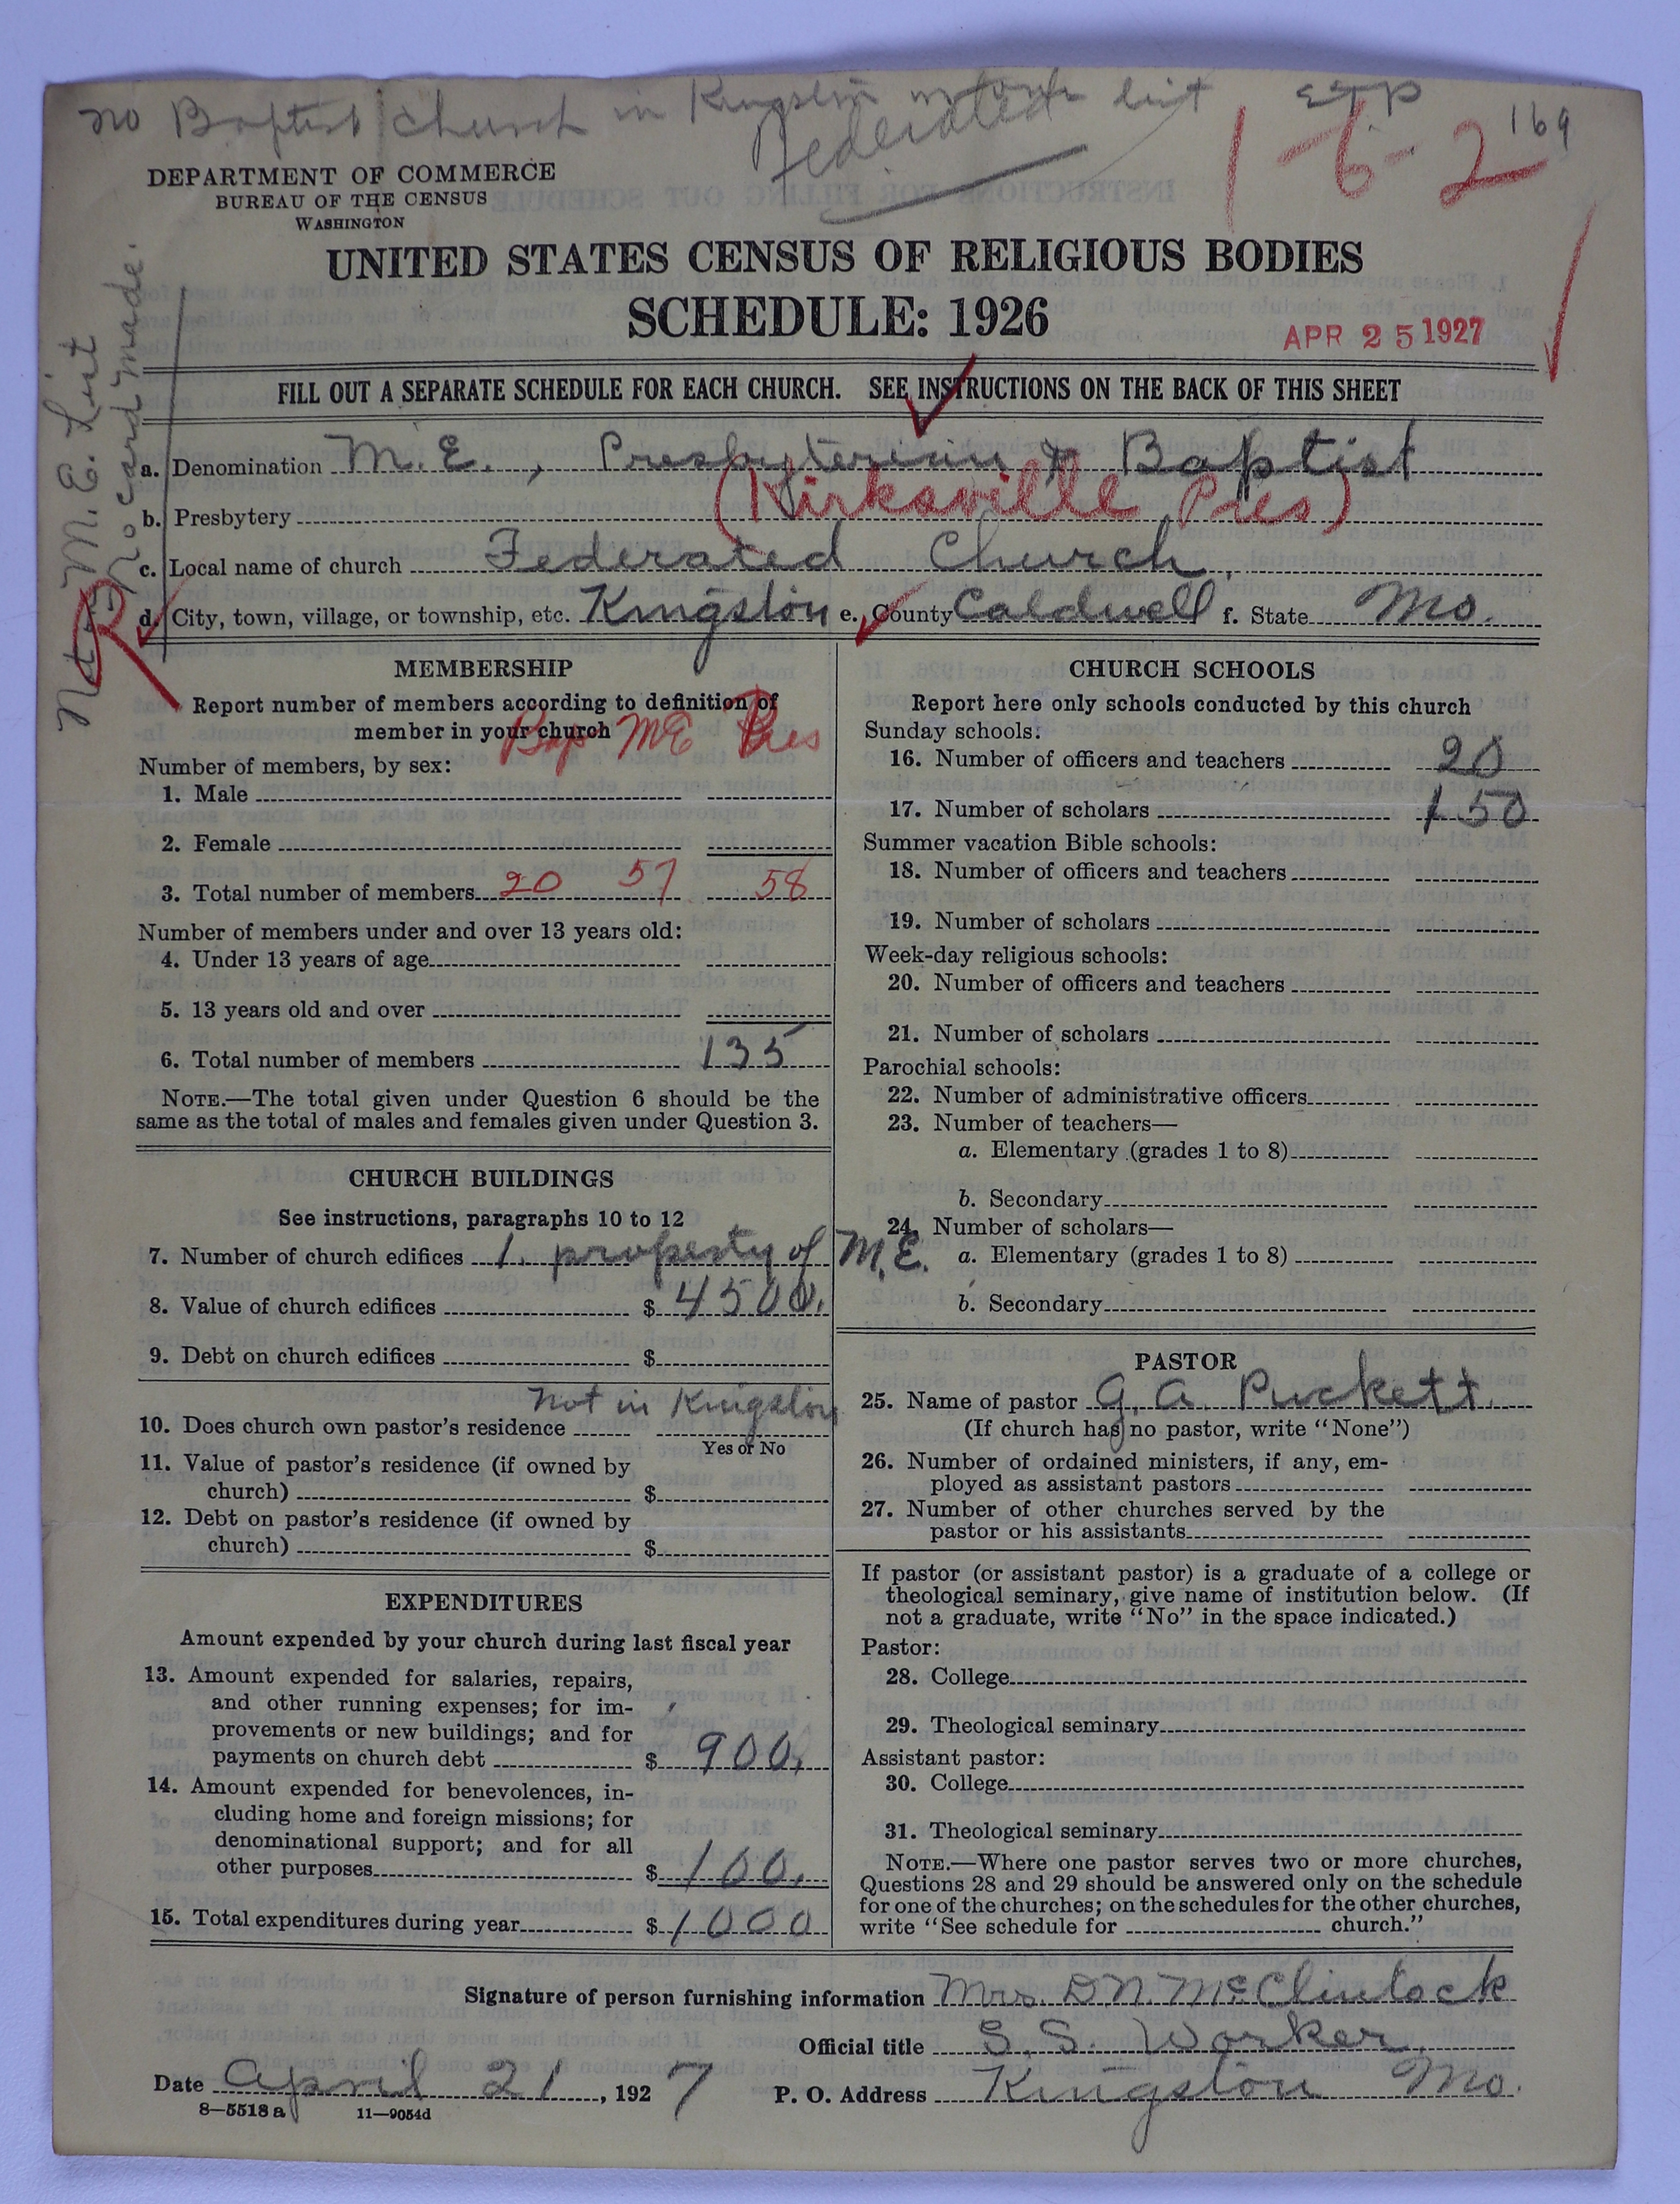 no Baptist church in Kingston in town list ETP 169
Federated
1-6-2
DEPARTMENT OF COMMERCE
BUREAU OF THE CENSUS
WASHINGTON
UNITED STATES CENSUS OF RELIGIOUS BODIES
SCHEDULE: 1926
APR 25 1927
FILL OUT A SEPARATE SCHEDULE FOR EACH CHURCH. SEE INSTRUCTIONS ON THE BACK OF THIS SHEET
Not in M. E. List
No card made.
R
a. Denomination M. E. , Presbyterian & Baptist
b. Presbytery (Kirksville Pres)
c. Local name of church Federated Church.
d. City, town, village, or township, etc. Kingston e. County Caldwell f. State Mo.
MEMBERSHIP
Report number of members according to definition of
member in your church
Bap ME Pres
Number of members, by sex:
1. Male
2. Female
3. Total number of members 20 57 58
Number of members under and over 13 years old:
4. Under 13 years of age
5. 13 years old and over
6. Total number of members 135
NOTE.—The total given under Question 6 should be the
same as the total of males and females given under Question 3.
CHURCH BUILDINGS
See instructions, paragraphs 10 to 12
7. Number of church edifices 1. property of M. E.
8. Value of church edifices $ 4500.
9. Debt on church edifices $
not in Kingston
10. Does church own pastor's residence
Yes or No
11. Value of pastor's residence (if owned by
church) $
12. Debt on pastor's residence (if owned by
church) $
EXPENDITURES
Amount expended by your church during last fiscal year
13. Amount expended for salaries, repairs,
and other running expenses; for im-
provements or new buildings; and for
payments on church debt $ 900.
14. Amount expended for benevolences, in-
cluding home and foreign missions; for
denominational support; and for all
other purposes $ 100.
15. Total expenditures during year $ 1000
CHURCH SCHOOLS
Report here only schools conducted by this church
Sunday schools:
16. Number of officers and teachers 20
17. Number of scholars 150
Summer vacation Bible schools:
18. Number of officers and teachers
19. Number of scholars
Week-day religious schools:
20. Number of officers and teachers
21. Number of scholars
Parochial schools:
22. Number of administrative officers
23. Number of teachers—
a. Elementary (grades 1 to 8)
b. Secondary
24. Number of scholars—
a. Elementary (grades 1 to 8)
b. Secondary
PASTOR
25. Name of pastor G. A. Puckett.
(If church has no pastor, write "None")
26. Number of ordained ministers, if any, em-
ployed as assistant pastors
27. Number of other churches served by the
pastor or his assistants
If pastor (or assistant pastor) is a graduate of a college or
theological seminary, give name of institution below. (If
not a graduate, write "No" in the space indicated.)
Pastor:
28. College
29. Theological seminary
Assistant pastor:
30. College
31. Theological seminary
NOTE.—Where one pastor serves two or more churches,
Questions 28 and 29 should be answered only on the schedule
for one of the churches; on the schedules for the other churches,
write "See schedule for church."
Signature of person furnishing information Mrs. D N. McClintock
Official title S. S. Worker
Date April 21, 1927 P. O. Address Kingston Mo.
8—5518 a 11—9054d